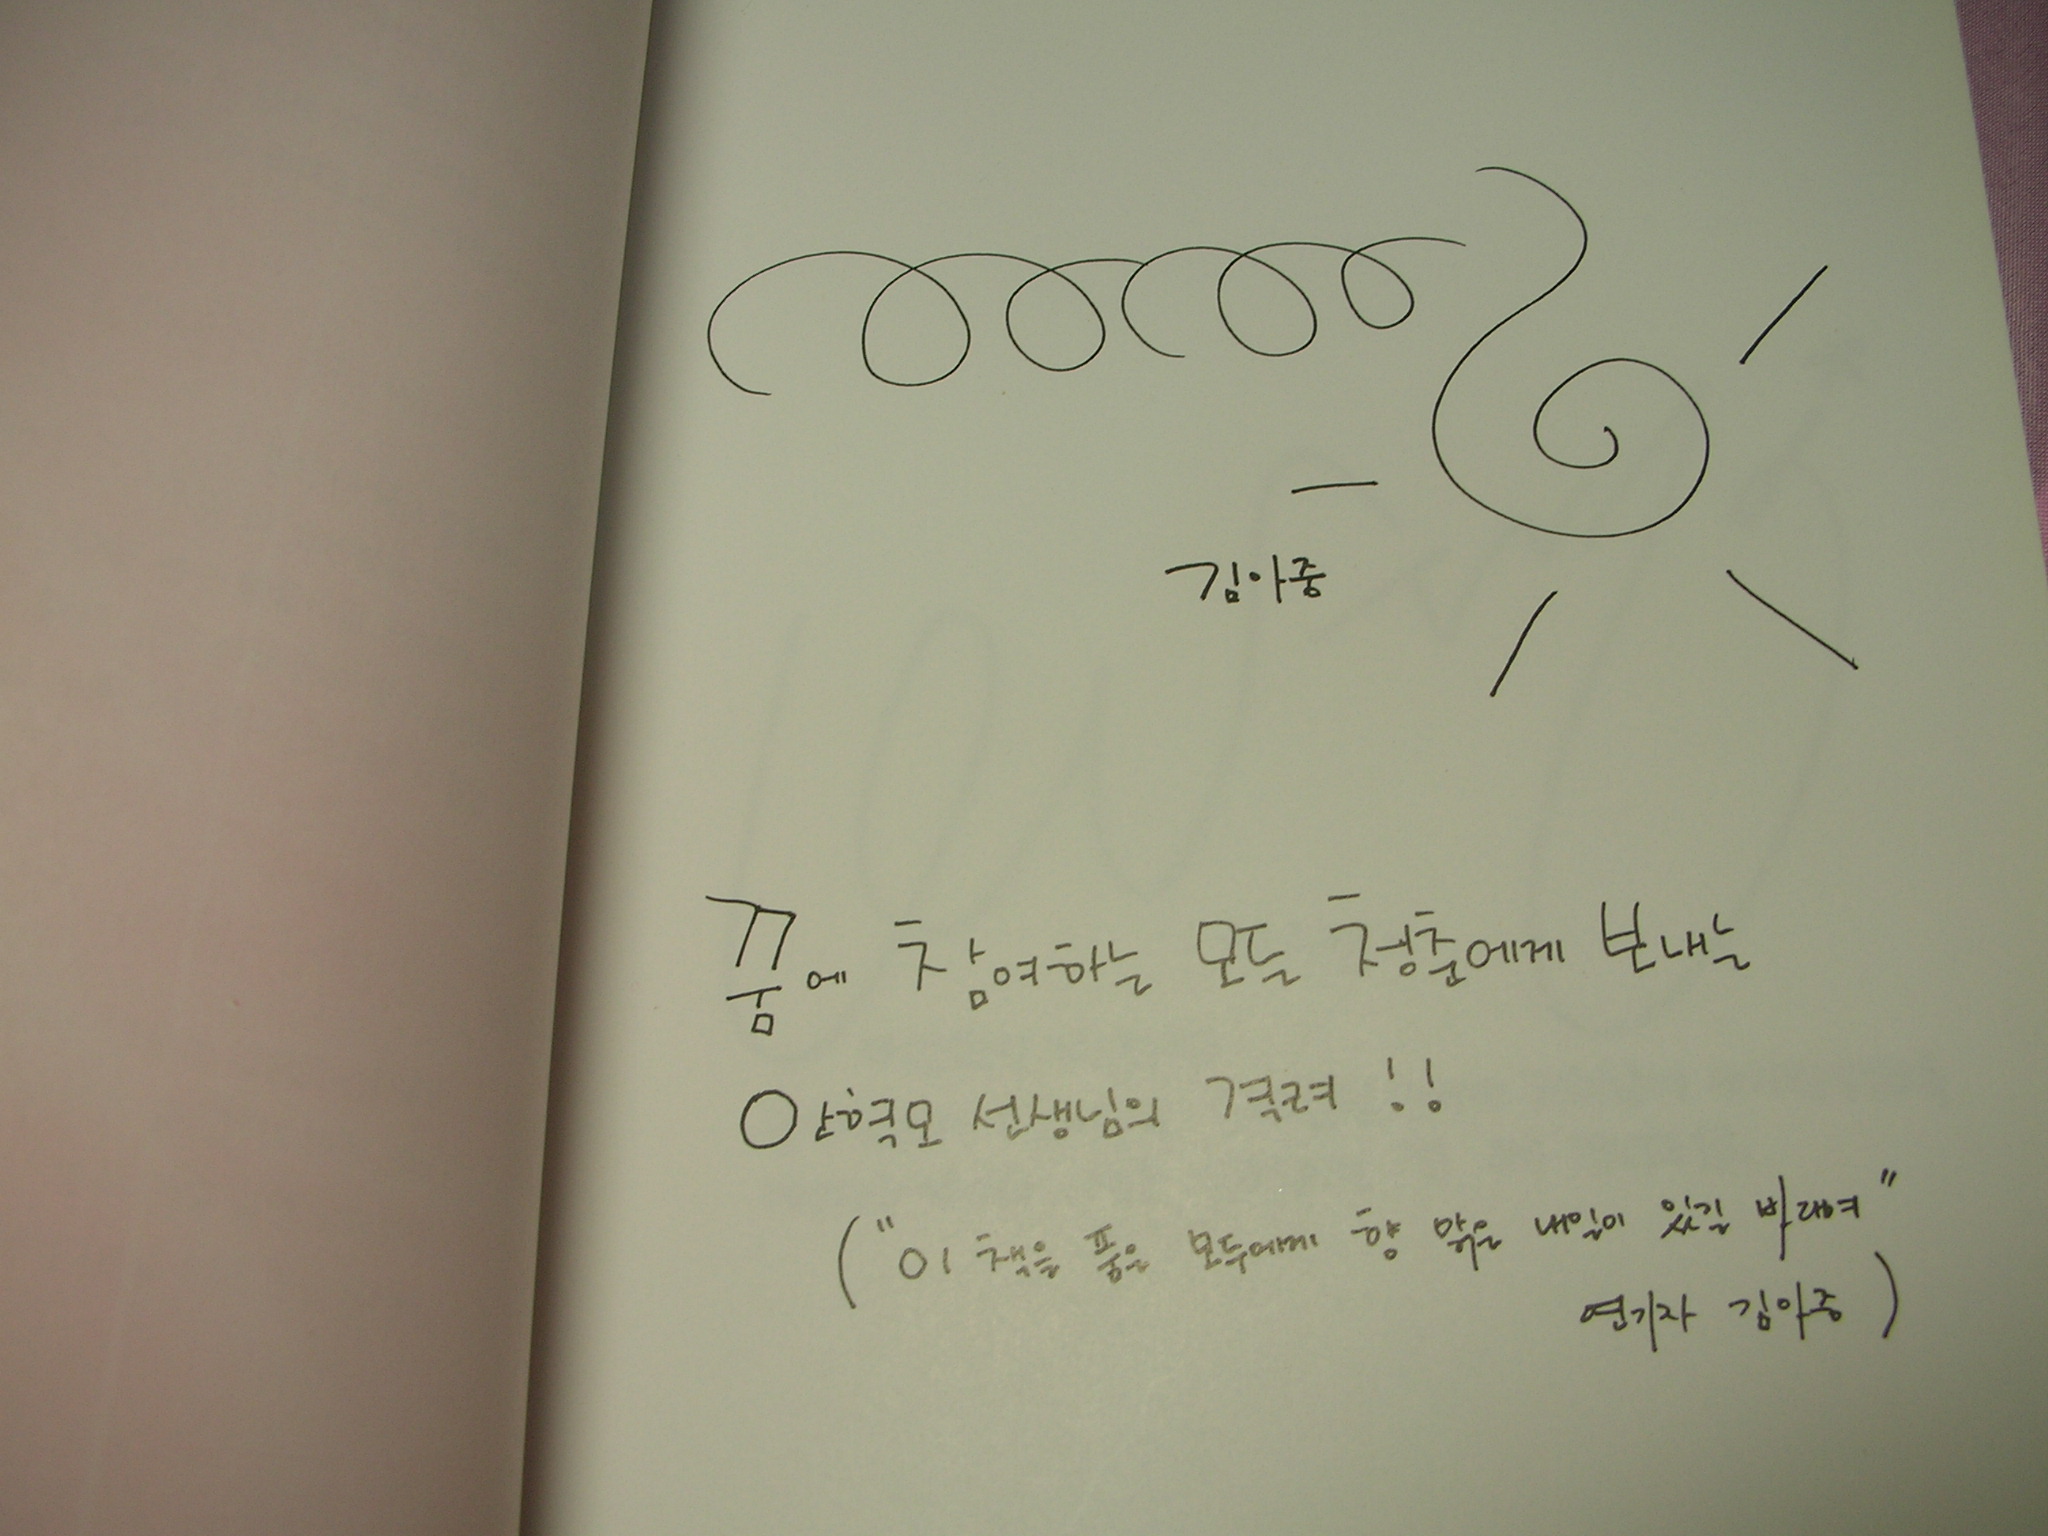 김아중
꿈에 참여하는 모든 청춘에게 보내는
안혁모 선생님의 격려!!
("이 책을 품은 모두에게 향 맑은 내일이 있길 바래여"
연기자 김아중)